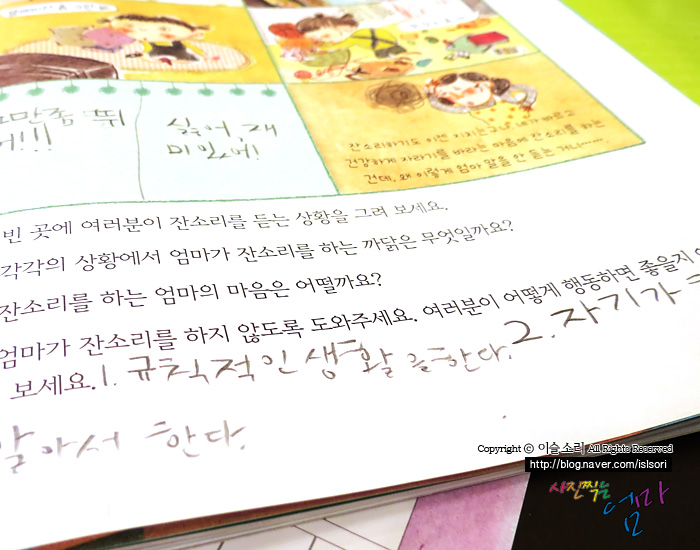 그만좀 뛰
어!!!
싫어, 재
미있어!
잔소리하기도 이젠 지치는구나. 바르고
건강하게 자라기를 바라는 마음에 잔소리를 하는
건데, 왜 이렇게 엄마 말을 안 듣는 거니……
빈 곳에 여러분이 잔소리를 듣는 상황을 그려 보세요.
각각의 상황에서 엄마가 잔소리를 하는 까닭은 무엇일까요?
잔소리를 하는 엄마의 마음은 어떨까요?
엄마가 잔소리를 하지 않도록 도와주세요. 여러분이 어떻게 행동하면 좋을지
보세요. 1. 규칙적인 생활을 한다. 2. 자기가
알아서 한다.
Copyright ⓒ 이슬소리 All Rights Reserved
http://blog.naver.com/islsori
사진찍는
엄마